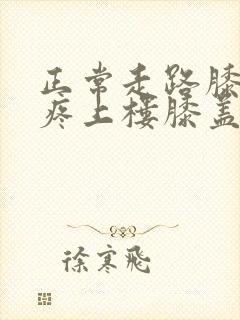 正常走路膝
疼上楼膝盖
徐寒飛